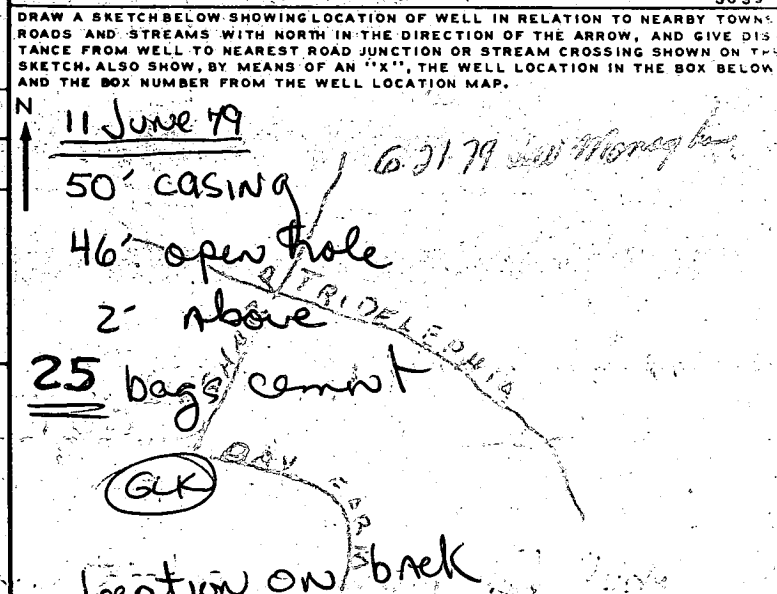 DRAW A SKETCH BELOW SHOWING LOCATION OF WELL IN RELATION TO NEARBY TOWNS
ROADS AND STREAMS WITH NORTH IN THE DIRECTION OF THE ARROW, AND GIVE DIS
TANCE FROM WELL TO NEAREST ROAD JUNCTION OR STREAM CROSSING SHOWN ON THE
SKETCH. ALSO SHOW, BY MEANS OF AN "X", THE WELL LOCATION IN THE BOX BELOW
AND THE BOX NUMBER FROM THE WELL LOCATION MAP.
N
11 June 79
6 21 79
50' casing
46' open hole
TRIDELPHIA
2' Above
25 bags cement
GLK
FARM
location on back